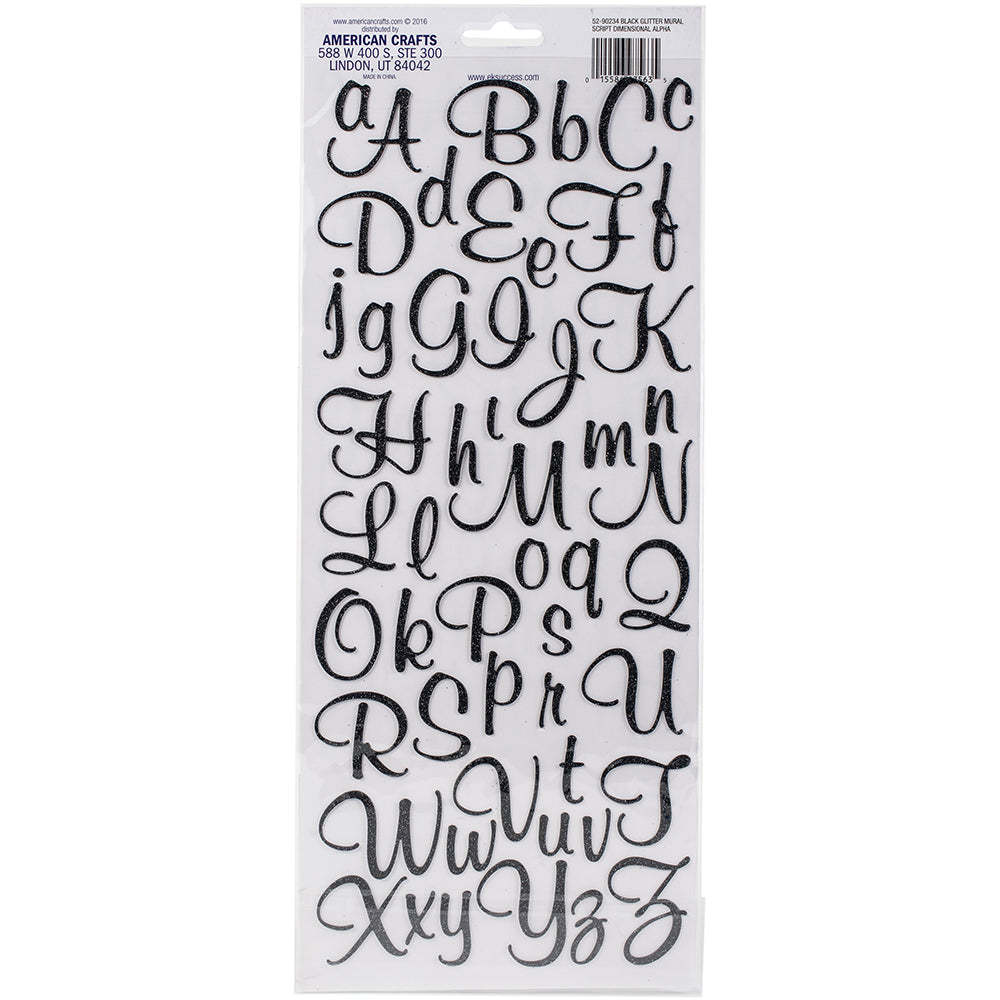 www.americancrafts.com © 2016
distributed by
AMERICAN CRAFTS
588 W 400 S, STE 300
LINDON, UT 84042
MADE IN CHINA.
www.eksuccess.com
52-90234 BLACK GLITTER MURAL
SCRIPT DIMENSIONAL ALPHA
a A B b C c
D d E e F f
j g G I J K
H h i M m n N
L l o q Q
O k P p s r U
R S t T
W w V u v
X x y Y z Z